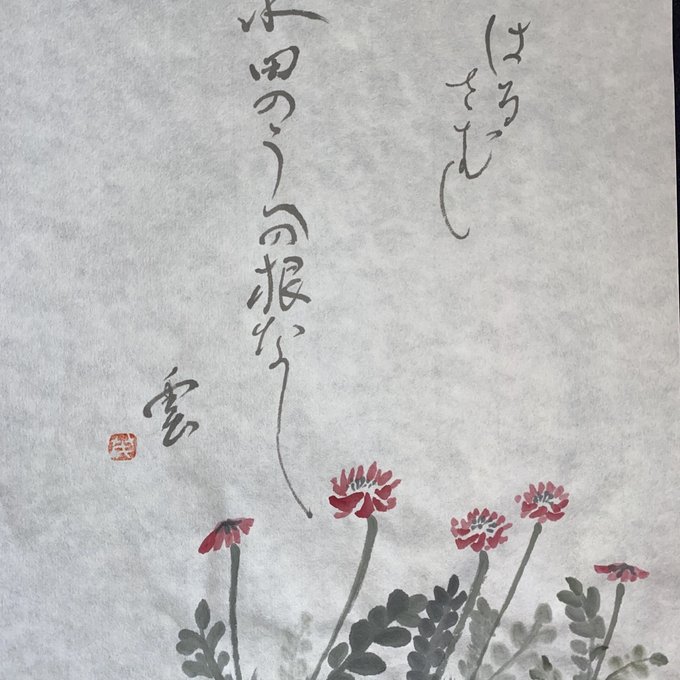 はるさむし
水田のうへの根なし
雲